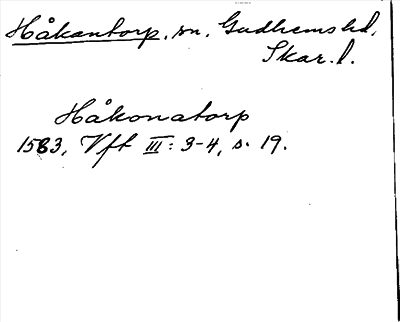 Håkantorp, sn. Gudhems hd,
Skar. l.
Håkonatorp
1583, Vft III: 3-4, s. 19.